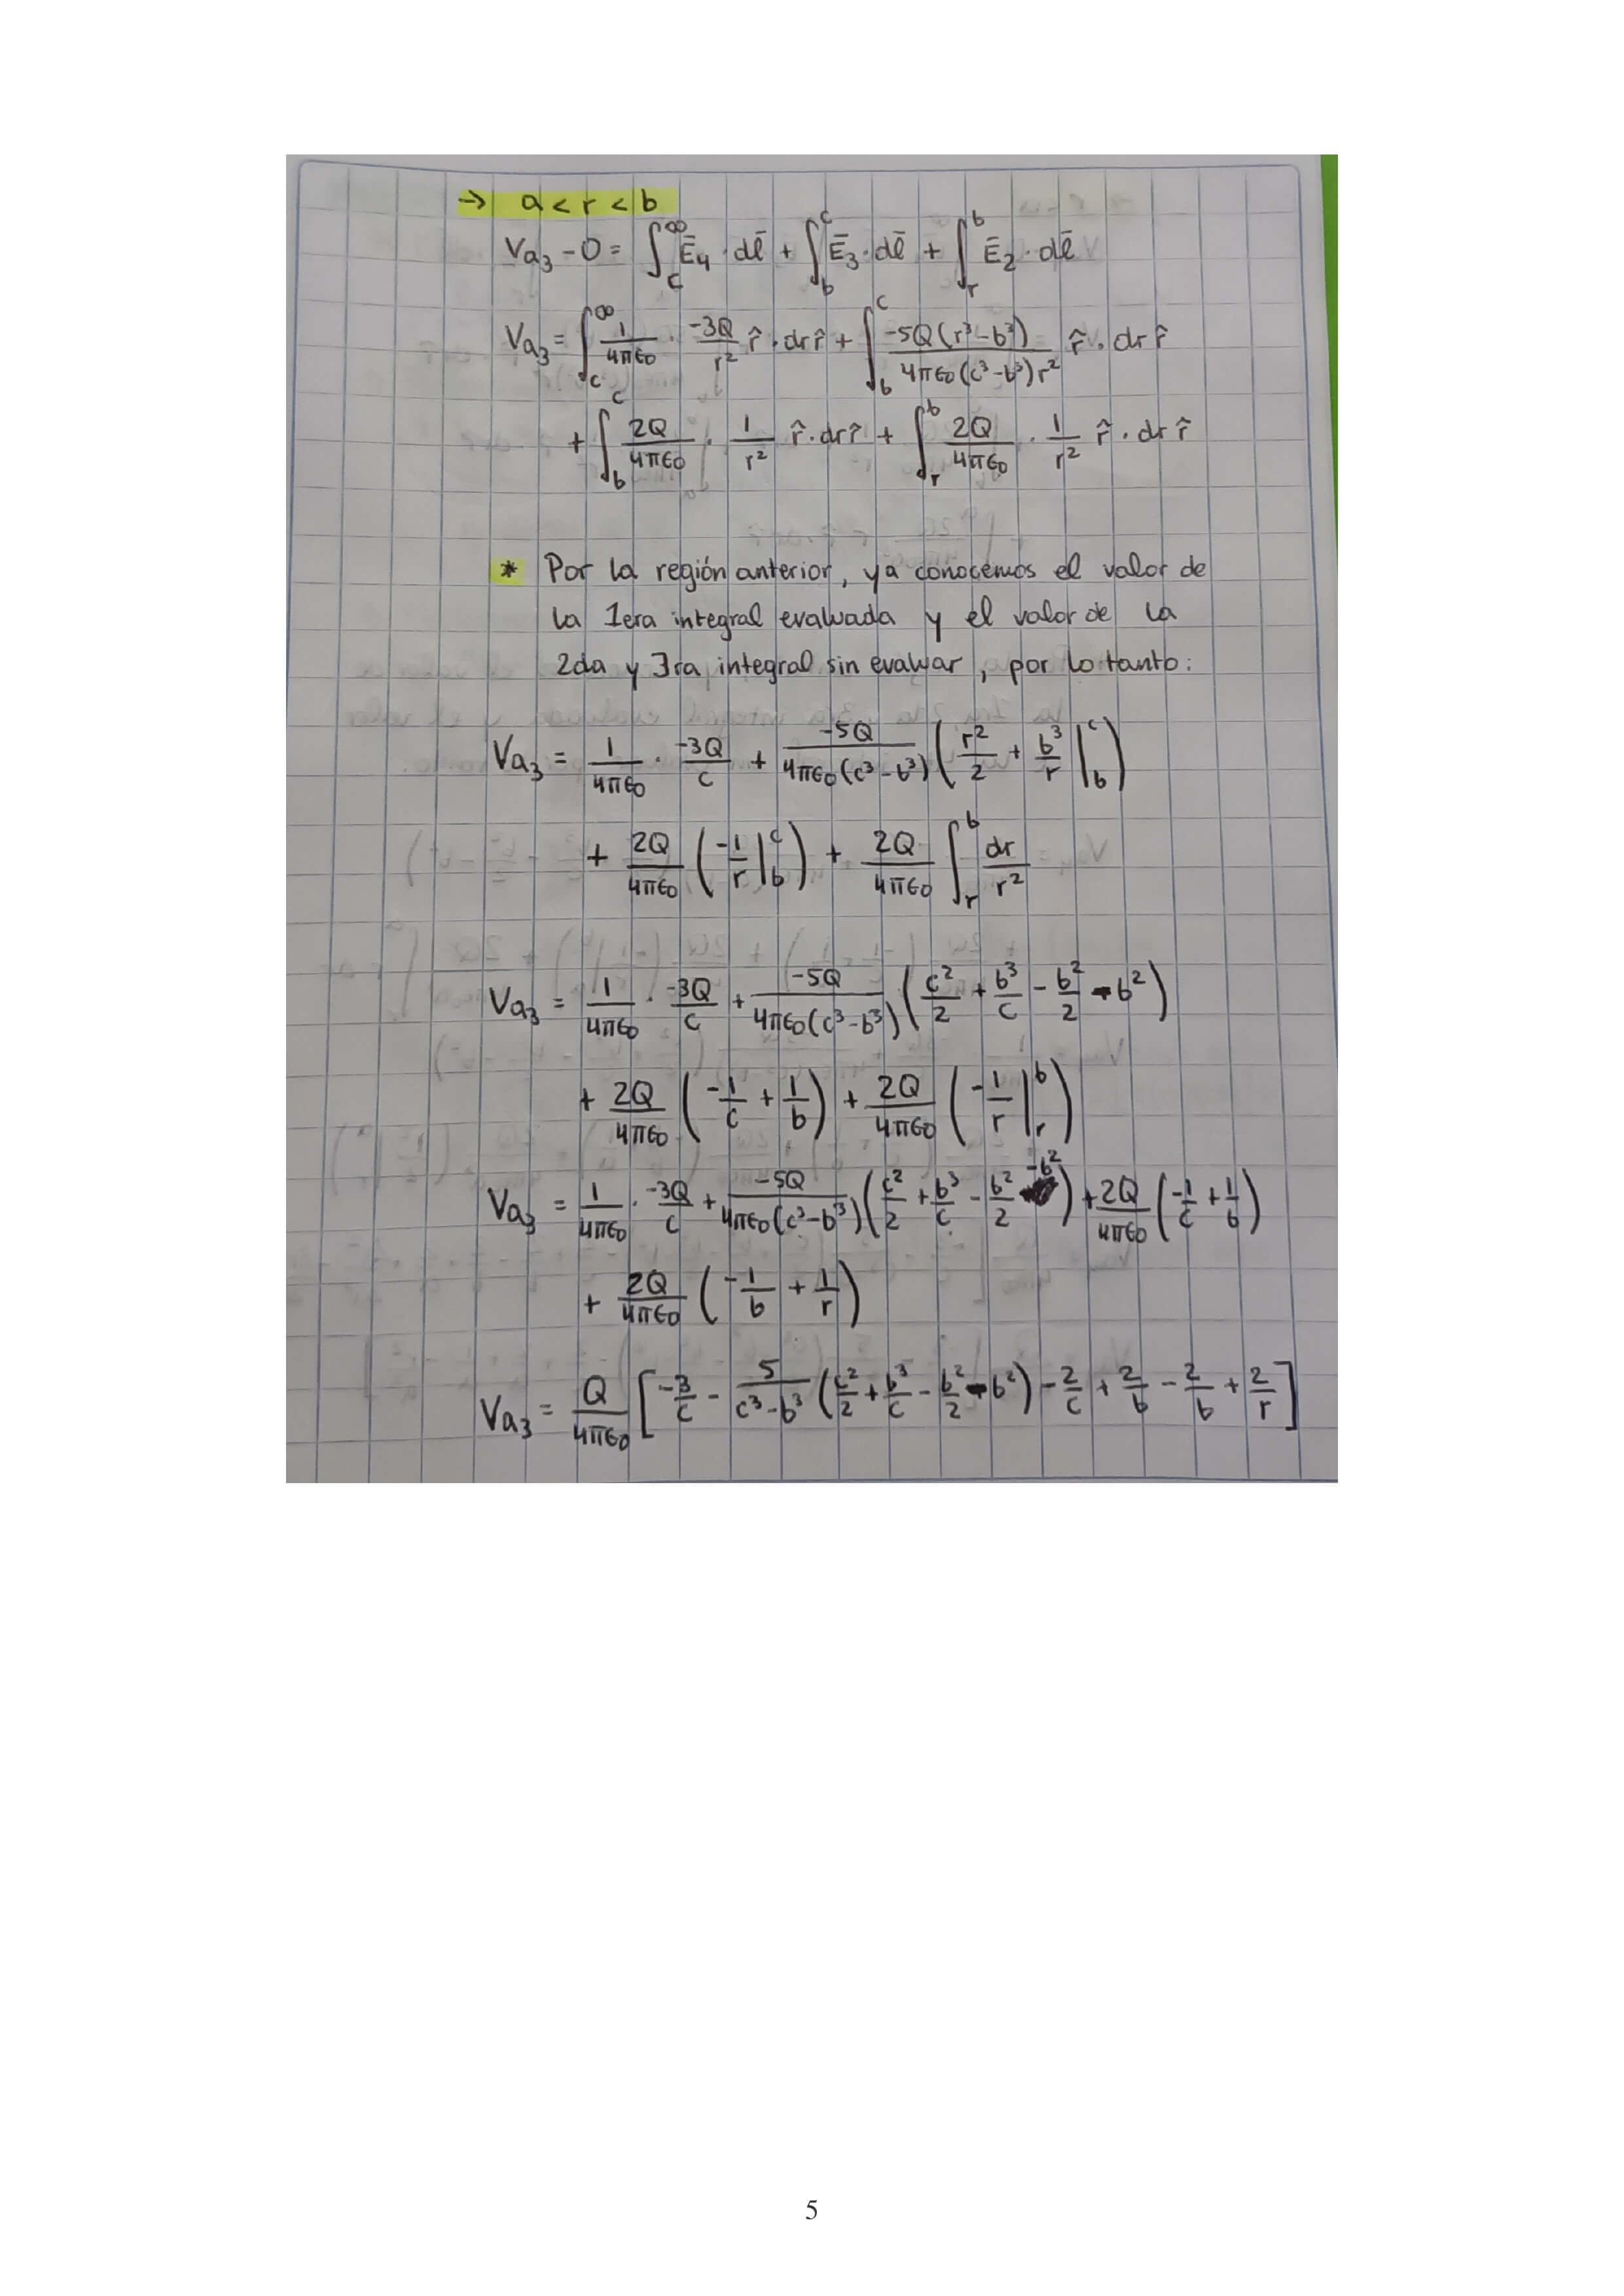 → a < r < b
Va₃ - 0 = ∫_c^∞ Ē₄ · dl̄ + ∫_b^c Ē₃ · dl̄ + ∫_r^b Ē₂ · dl̄
Va₃ = ∫_c^∞ 1/(4πε₀) · -3Q/r² r̂ · dr r̂ + ∫_b^c -5Q(r³-b³)/(4πε₀(c³-b³)r²) r̂ · dr r̂
+ ∫_b^c 2Q/(4πε₀) · 1/r² r̂ · dr r̂ + ∫_r^b 2Q/(4πε₀) · 1/r² r̂ · dr r̂
* Por la región anterior, ya conocemos el valor de
la 1era integral evaluada y el valor de la
2da y 3ra integral sin evaluar, por lo tanto:
Va₃ = 1/(4πε₀) · -3Q/c + -5Q/(4πε₀(c³-b³)) (r²/2 + b³/r |_b^c)
+ 2Q/(4πε₀) (-1/r |_b^c) + 2Q/(4πε₀) ∫_r^b dr/r²
Va₃ = 1/(4πε₀) · -3Q/c + -5Q/(4πε₀(c³-b³)) (c²/2 + b³/c - b²/2 - b²)
+ 2Q/(4πε₀) (-1/c + 1/b) + 2Q/(4πε₀) (-1/r |_r^b)
Va₃ = 1/(4πε₀) · -3Q/c + -5Q/(4πε₀(c³-b³)) (c²/2 + b³/c - b²/2 - b²) + 2Q/(4πε₀) (-1/c + 1/b)
+ 2Q/(4πε₀) (-1/b + 1/r)
Va₃ = Q/(4πε₀) [-3/c - 5/(c³-b³) (c²/2 + b³/c - b²/2 - b²) - 2/c + 2/b - 2/b + 2/r]
5